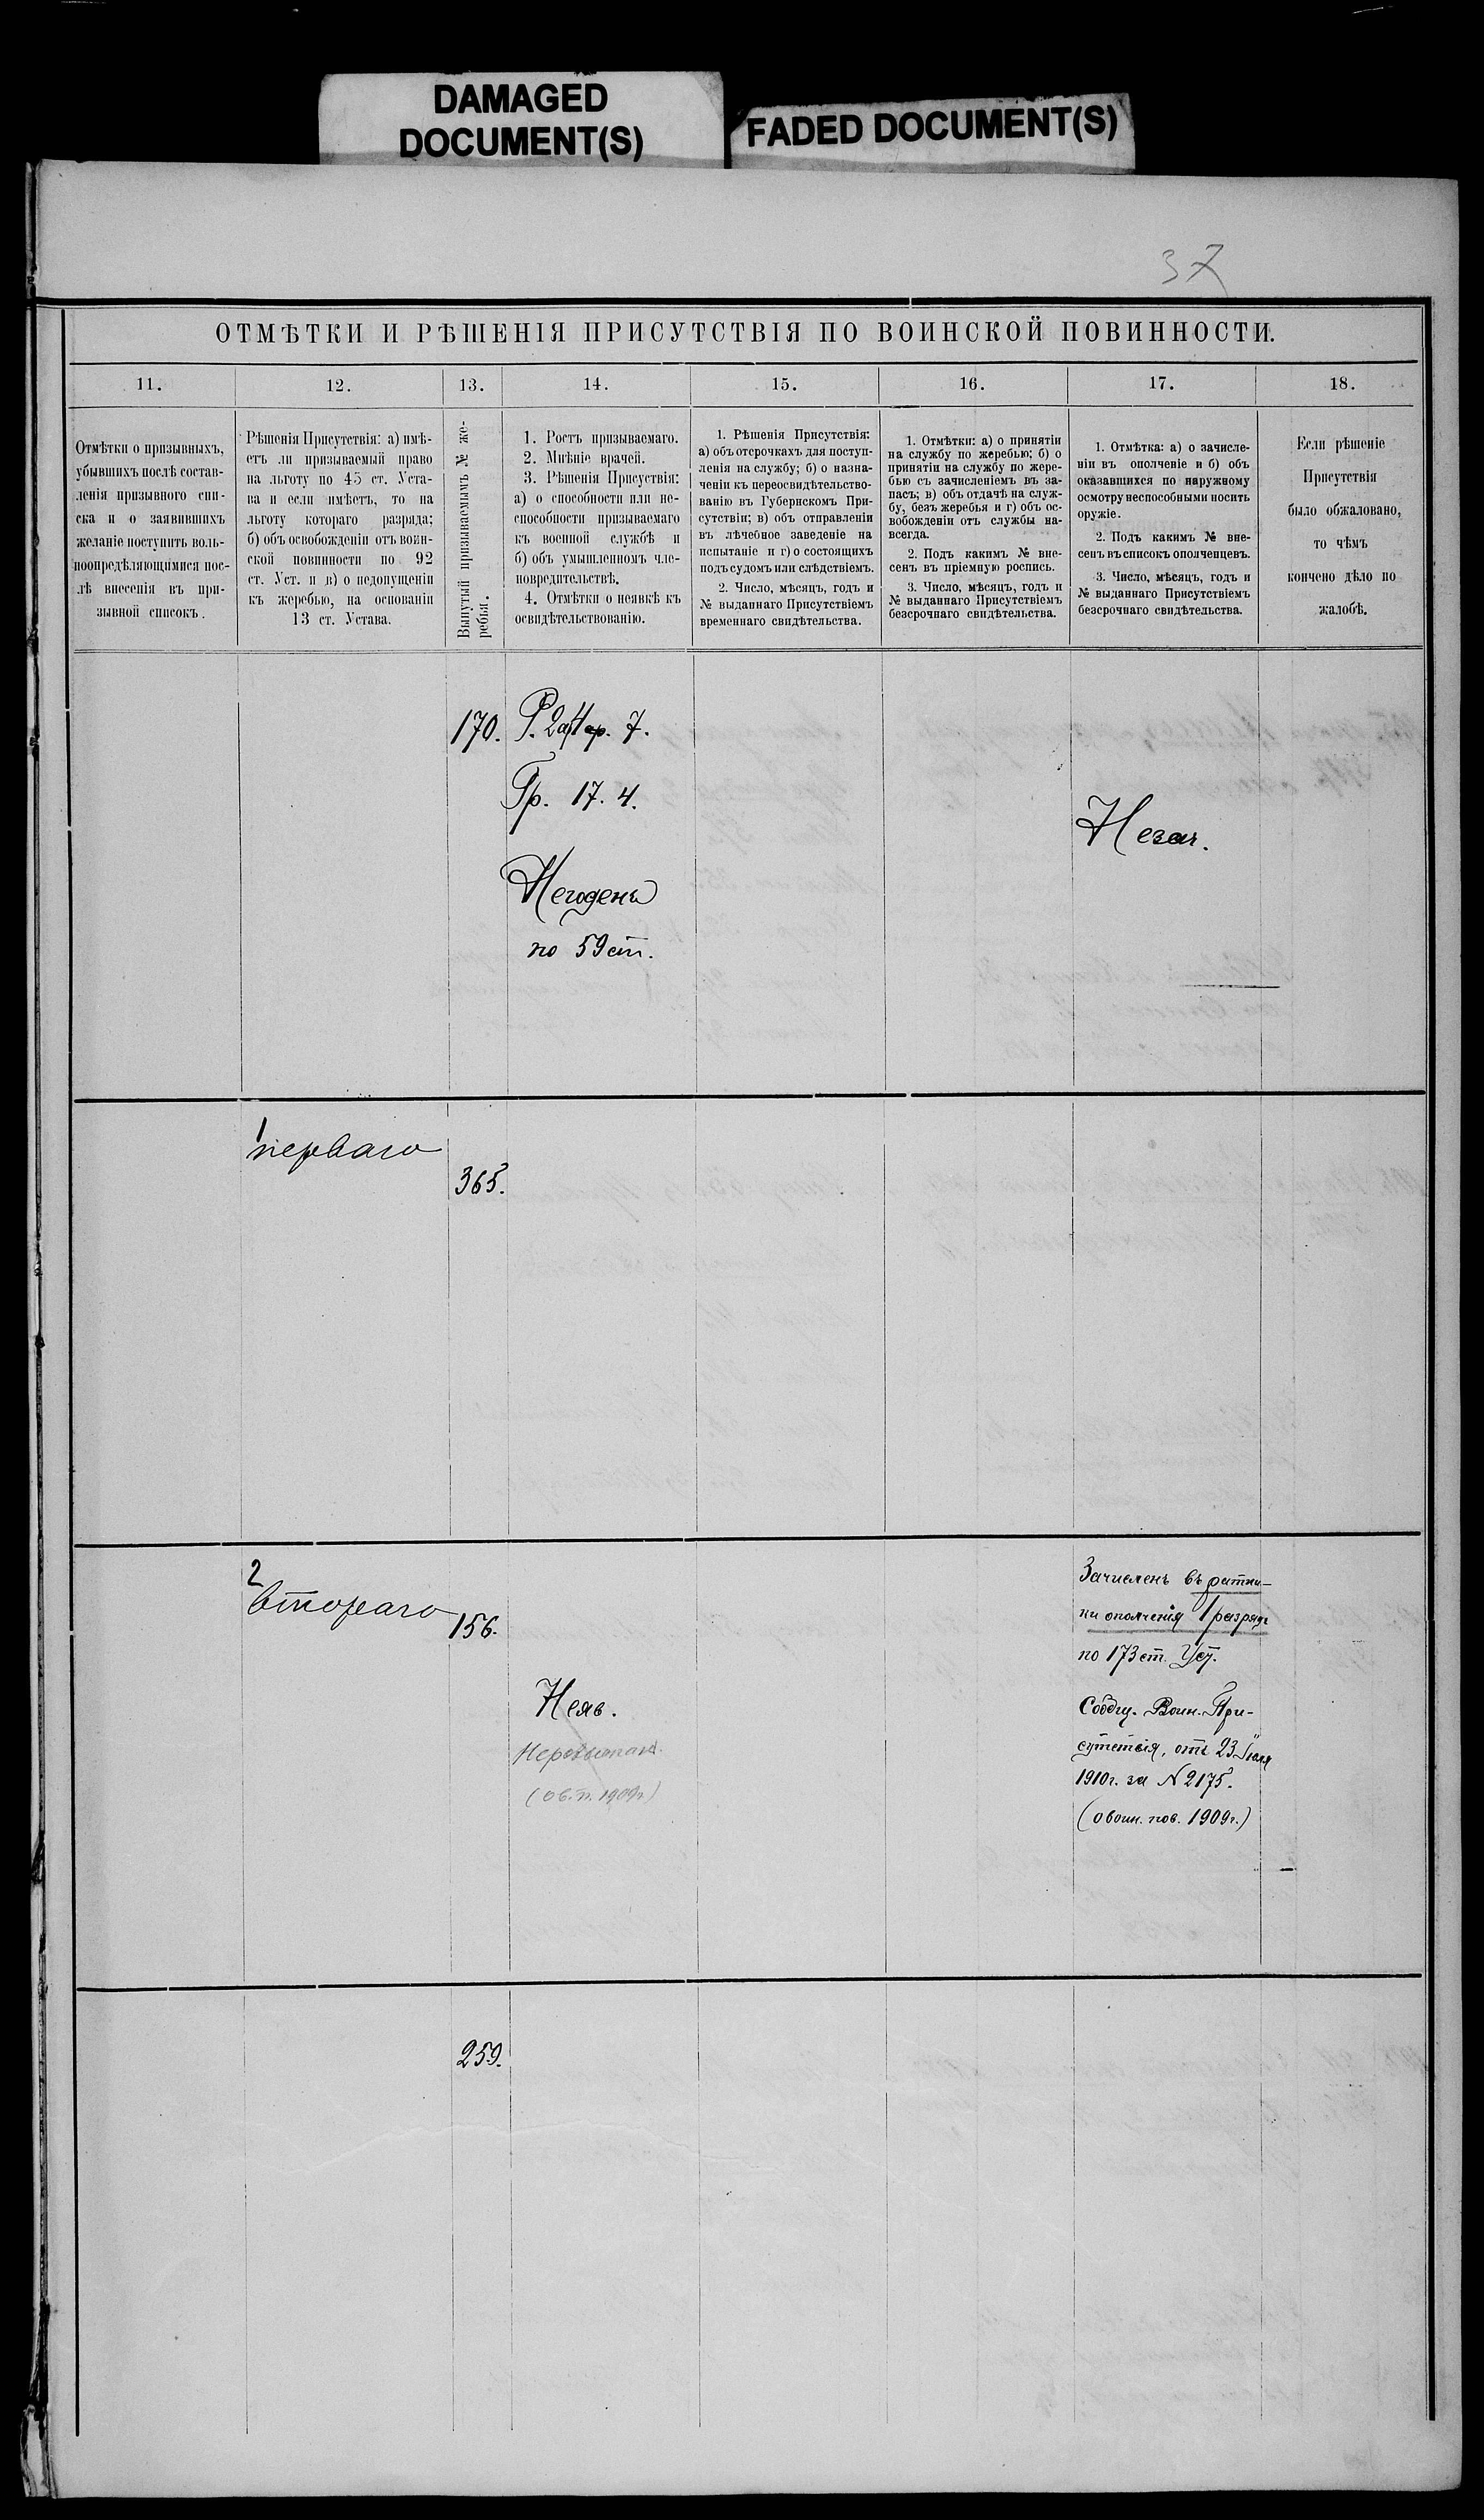 DAMAGED
DOCUMENT(S)
FADED DOCUMENT(S)
37
ОТМѢТКИ И РѢШЕНІЯ ПРИСУТСТВІЯ ПО ВОИНСКОЙ ПОВИННОСТИ.
11.
12.
13.
14.
15.
16.
17.
18.
Отмѣтки о призывныхъ,
убывшихъ послѣ состав-
ленія призывного спи-
ска и о заявившихъ
желаніе поступить воль-
ноопредѣляющимися пос-
лѣ внесенія въ при-
зывной списокъ.
Рѣшенія Присутствія: а) имѣ-
етъ ли призываемый право
на льготу по 45 ст. Уста-
ва и если имѣетъ, то на
льготу котораго разряда;
б) объ освобожденіи отъ воин-
ской повинности по 92
ст. Уст. и в) о недопущеніи
къ жеребью, на основаніи
13 ст. Устава.
Вынутый призываемымъ № же-
ребья.
1. Ростъ призываемаго.
2. Мнѣніе врачей.
3. Рѣшенія Присуствія:
а) о способности или не-
способности призываемаго
къ военной службѣ и
б) объ умышленномъ чле-
новредительствѣ.
4. Отмѣтки о неявкѣ къ
освидѣтельствованію.
1. Рѣшенія Присутствія:
а) объ отсрочкахъ для поступ-
ленія на службу; б) о назна-
ченіи къ переосвидѣтельство-
ванію въ Губернскомъ При-
сутствіи; в) объ отправленіи
въ лѣчебное заведеніе на
испытаніе и г) о состоящихъ
подъ судомъ или слѣдствіемъ.
2. Число, мѣсяцъ, годъ и
№ выданнаго Присутствіемъ
временнаго свидѣтельства.
1. Отмѣтки: а) о принятіи
на службу по жеребью; б) о
принятіи на службу по жере-
бью съ зачисленіемъ въ за-
пасъ; в) объ отдачѣ на служ-
бу, безъ жеребья и г) объ ос-
вобожденіи отъ службы на-
всегда.
2. Подъ какимъ № вне-
сенъ въ пріемную роспись.
3. Число, мѣсяцъ, годъ и
№ выданнаго Присутствіемъ
безсрочнаго свидѣтельства.
1. Отмѣтка: а) о зачисле-
ніи въ ополченіе и б) объ
оказавшихся по наружному
осмотру неспособными носить
оружіе.
2. Подъ какимъ № вне-
сенъ въ списокъ ополченцевъ.
3. Число, мѣсяцъ, годъ и
№ выданнаго Присутствіемъ
безсрочнаго свидѣтельства.
Если рѣшеніе
Присутствія
было обжаловано,
то чѣмъ
кончено дѣло по
жалобѣ.
170.
Р. 2 ар. 7.
Гр. 17. 4.
Негоденъ
по 59 ст.
Незач.
1
перваго
365.
2
втораго
156.
Неяв.
(о в. п. 1909г)
Зачисленъ въ ратни-
ки ополченія 1 разряда
по 173 ст. Уст.
Сообщ. Воин. При-
сутствія, отъ 23 Іюля
1910г. за № 2175.
(о воин. пов. 1909г.)
259.